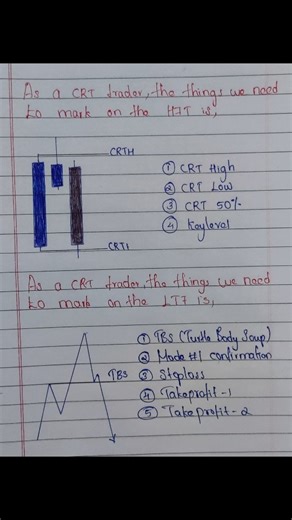 As a CRT trader, the things we need
to mark on the HTF is,
CRTH
① CRT High
② CRT Low
③ CRT 50%
④ Keylevel
CRTL
As a CRT trader, the things we need
to mark on the LTF is,
① TBS (Turtle Body Soup)
② Mode #1 confirmation
TBS
③ Stoploss
④ Takeprofit-1
⑤ Takeprofit-2